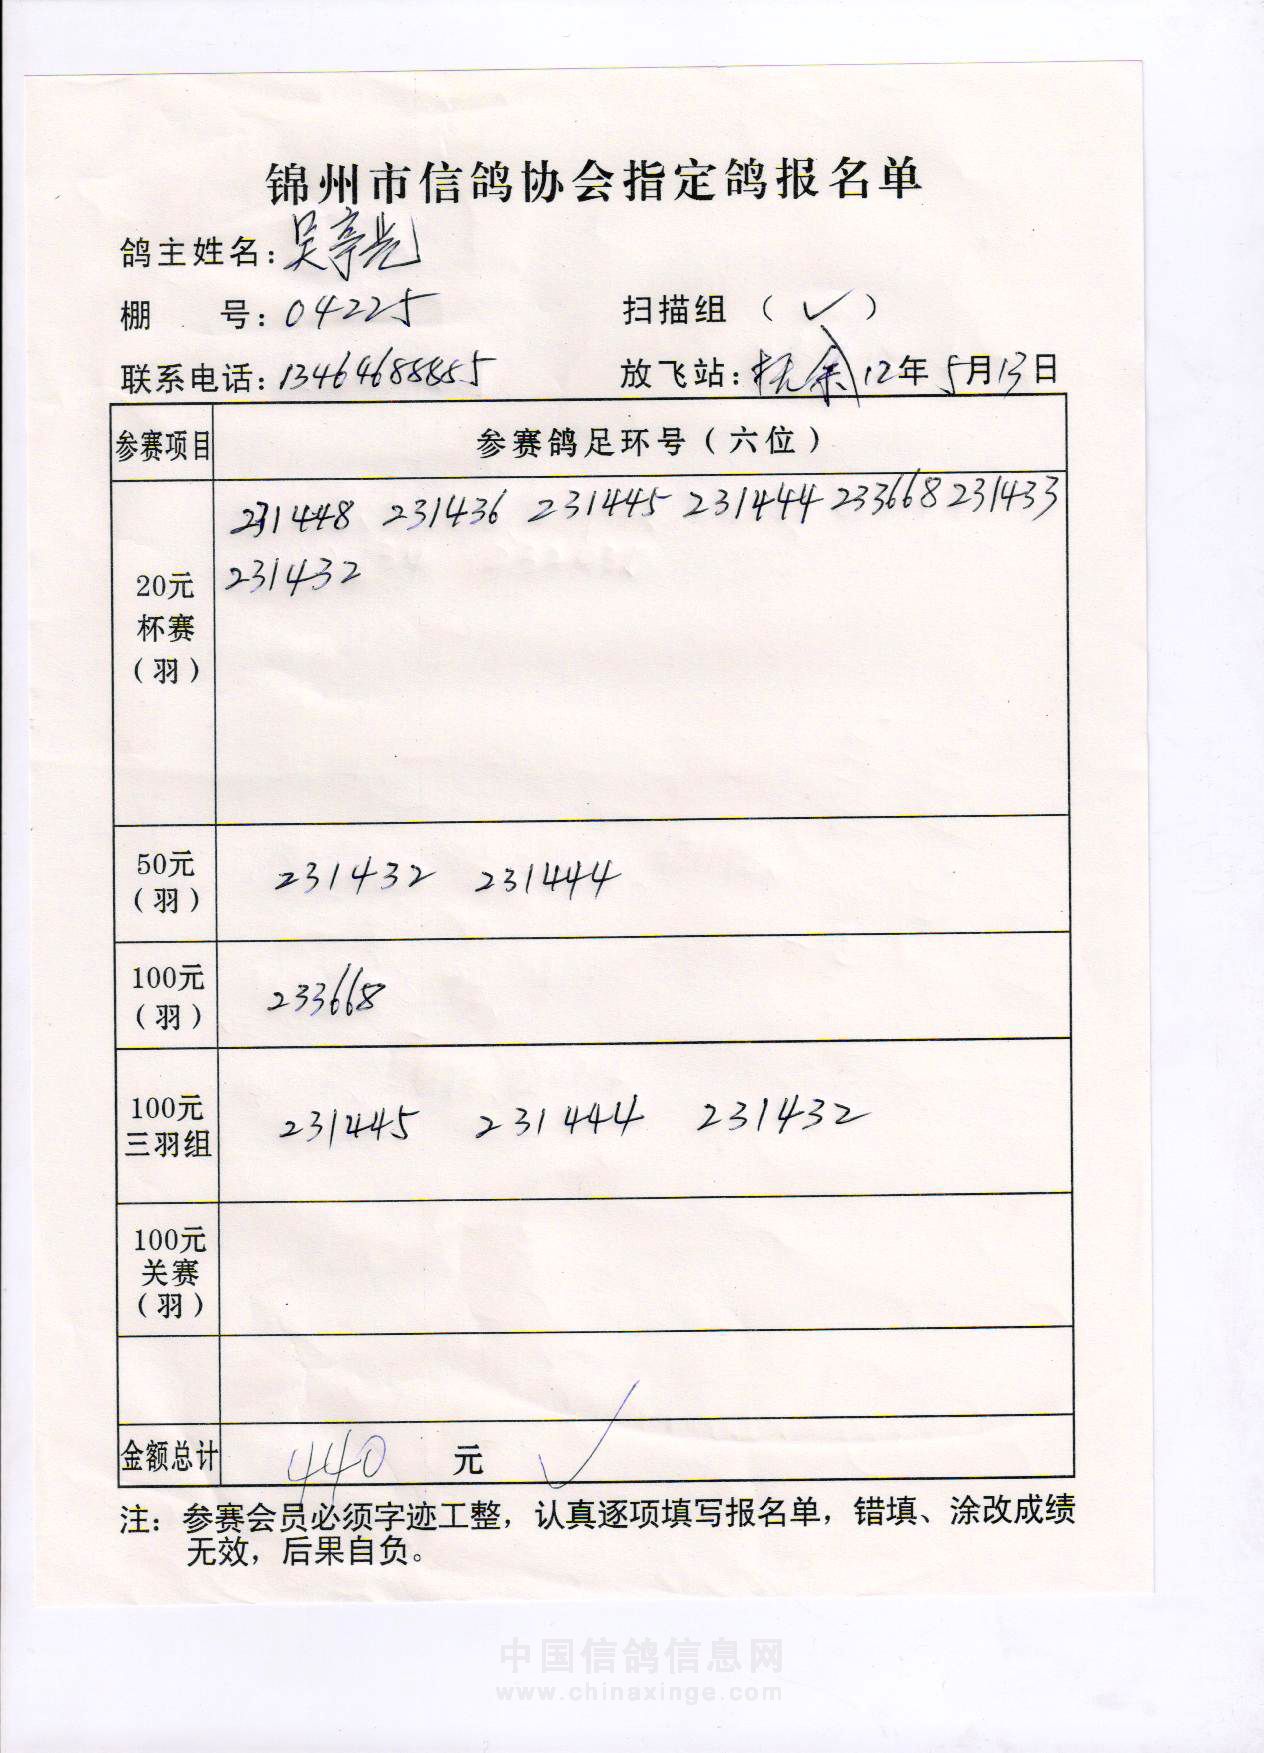 锦州市信鸽协会指定鸽报名单
鸽主姓名：吴亭光
棚 号：04225 扫描组（✓）
联系电话：13464688885 放飞站：扶余 12年5月13日
参赛项目 参赛鸽足环号（六位）
231448 231436 231445 231444 233668 231433
231432
20元
杯赛
（羽）
50元
（羽）
231432 231444
100元
（羽）
233668
100元
三羽组
231445 231444 231432
100元
关赛
（羽）
金额总计 440 元 ✓
注：参赛会员必须字迹工整，认真逐项填写报名单，错填、涂改成绩
无效，后果自负。
中国信鸽信息网
www.chinaxinge.com